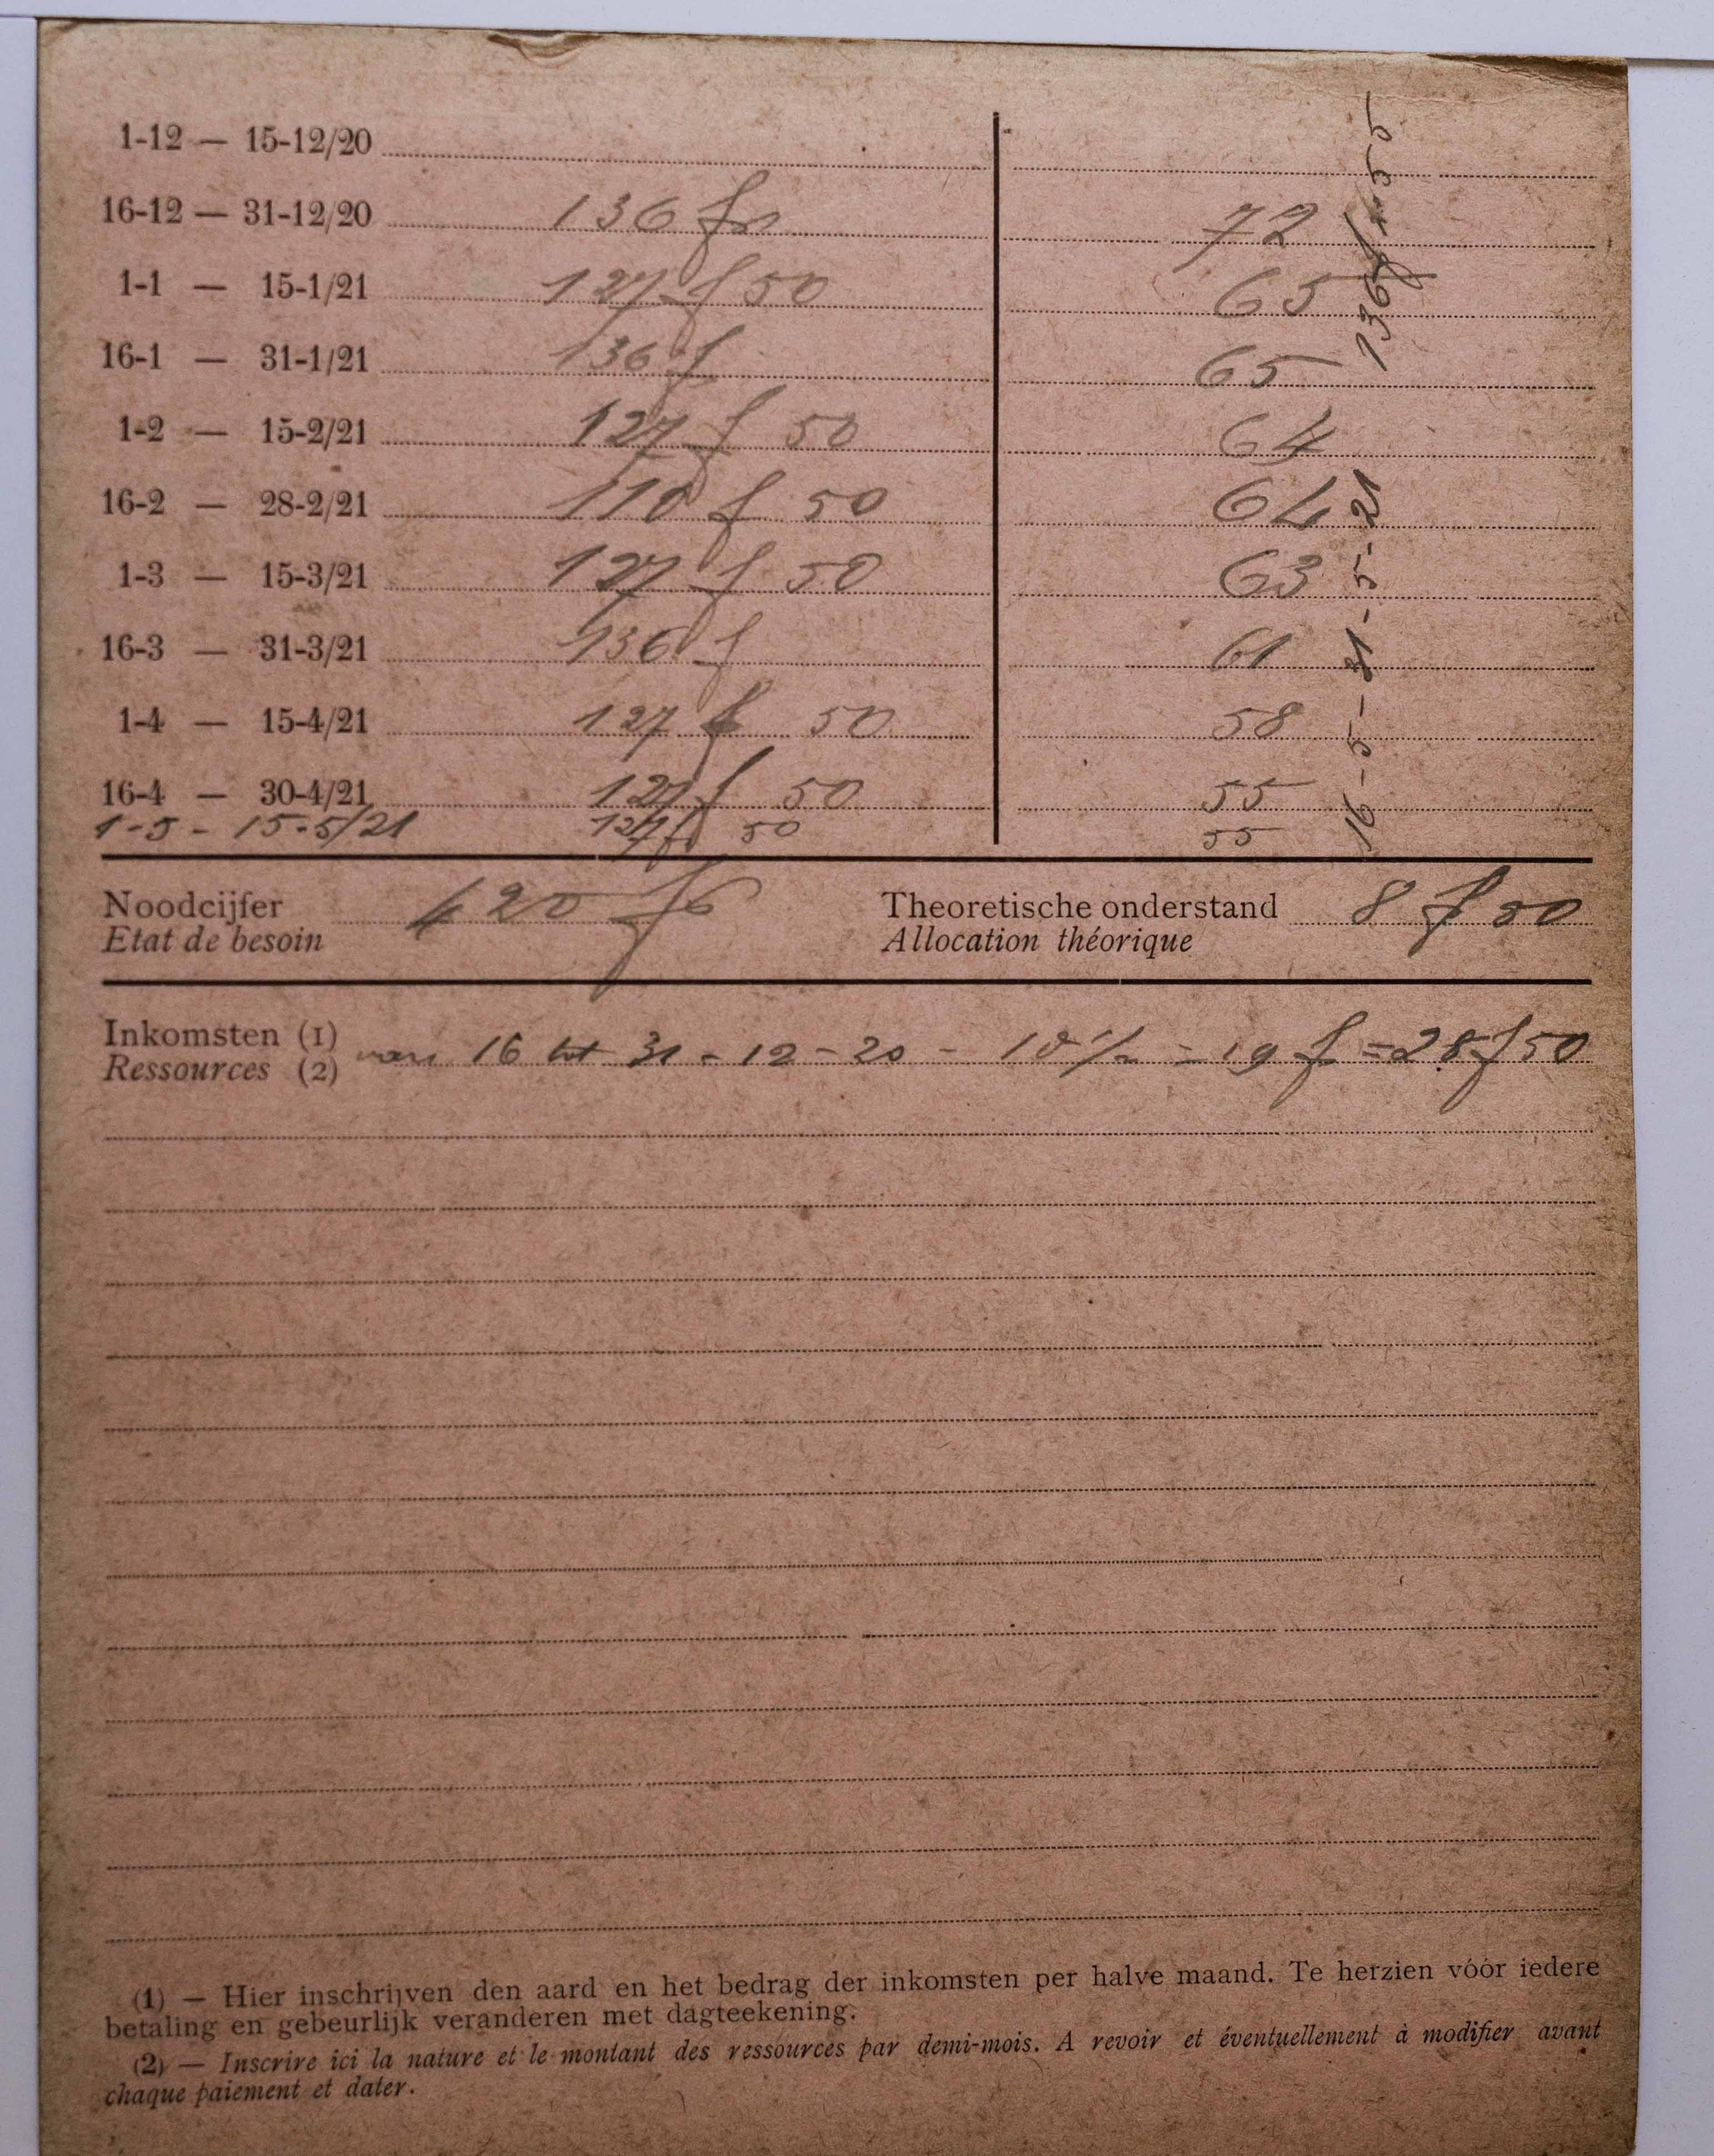 1-12 — 15-12/20
16-12 — 31-12/20 136 fr 72
1-1 — 15-1/21 127 f 50 65
16-1 — 31-1/21 136 f 65
1-2 — 15-2/21 127 f 50 64
16-2 — 28-2/21 110 f 50 64
1-3 — 15-3/21 127 f 50 63
16-3 — 31-3/21 136 f 61
1-4 — 15-4/21 127 f 50 58
16-4 — 30-4/21 127 f 50 55
1-5 - 15-5/21 127 f 50 55
16-5-31-5-21 136 f - 55
Noodcijfer 420 fr Theoretische onderstand 8 f 50
Etat de besoin Allocation théorique
Inkomsten (1)
Ressources (2) van 16 tot 31-12-20 - 10% = 19 f = 28 f 50
(1) — Hier inschrijven den aard en het bedrag der inkomsten per halve maand. Te herzien vóór iedere
betaling en gebeurlijk veranderen met dagteekening.
(2) — Inscrire ici la nature et le montant des ressources par demi-mois. A revoir et éventuellement à modifier avant
chaque paiement et dater.